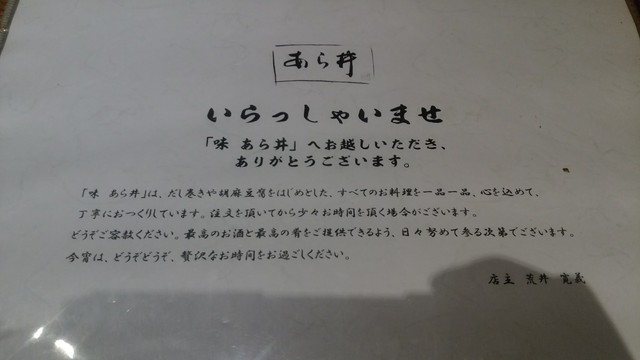 あら井
いらっしゃいませ
「味 あら井」へお越しいただき、
ありがとうございます。
「味 あら井」は、だし巻きや胡麻豆腐をはじめとした、すべてのお料理を一品一品、心を込めて、
丁寧におつくりしています。注文を頂いてから少々お時間を頂く場合がございます。
どうぞご容赦ください。最高のお酒と最高の肴をご提供できるよう、日々努めて参る次第でございます。
今宵は、どうぞどうぞ、贅沢なお時間をお過ごしください。
店主 荒井 寛義